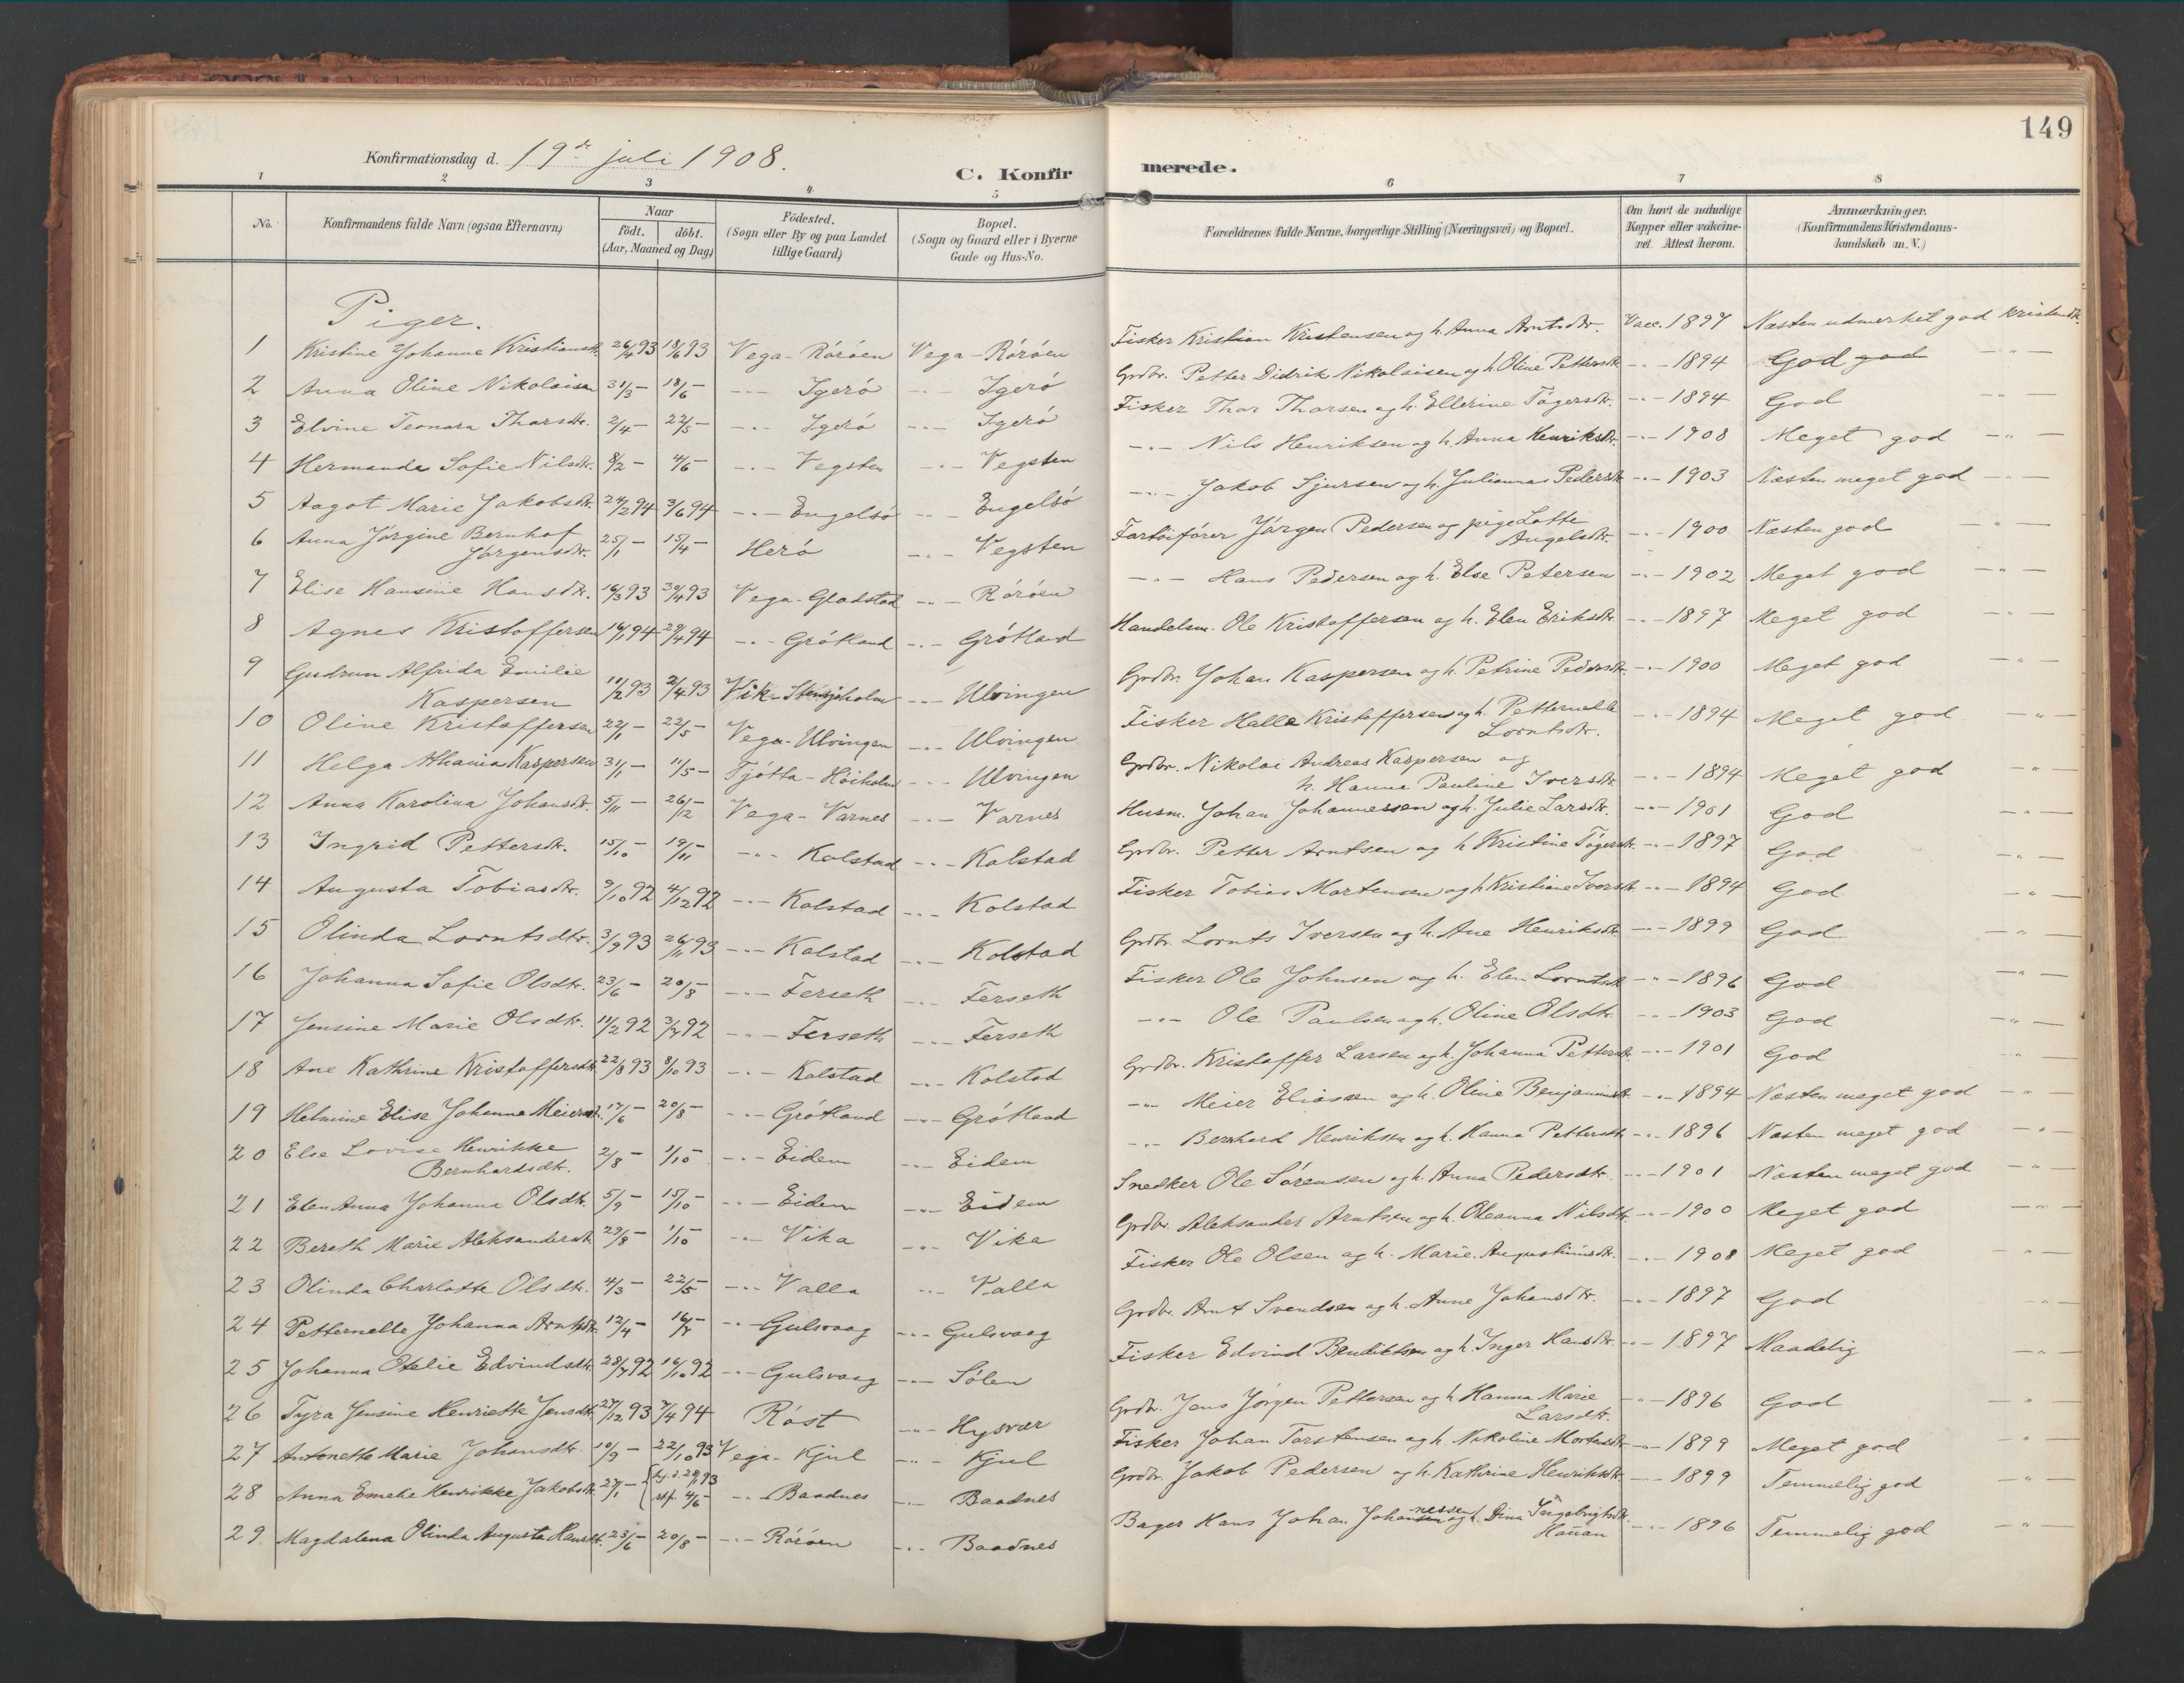 149
Konfirmationsdag d. 19de juli 1908.
C. Konfirmerede.
1 2 3 4 5 6 7 8
No. Konfirmandens fulde Navn (ogsaa Efternavn) Naar født. døbt. (Aar, Maaned og Dag) Fødested. (Sogn eller By og paa Landet tillige Gaard) Bopæl. (Sogn og Gaard eller i Byerne Gade og Hus-No. Forældrenes fulde Navne, borgerlige Stilling (Næringsvei) og Bopæl. Om havt de naturlige Kopper eller vakcineret. Attest herom. Anmærkninger. (Konfirmandens Kristendomskundskab m. V.)
Piger.
1 Kristine Johanne Kristiansdtr. 26/4 93 18/6 93 Vega - Röröen Vega - Röröen Fisker Kristian Kristensen og h. Anna Arntsdtr. Vacc. 1897 Næsten udmerket god kristendk.
2 Anna Oline Nikolaisen 31/3 — 18/6 — -"- Igerö -"- Igerö Grdbr. Petter Didrik Nikolaisen og h. Oline Pettersdtr. -"- 1894 God god -"-
3 Elvine Teonora Thorsdtr. 2/4 — 22/5 — -"- Igerö -"- Igerö Fisker Thor Thorsen og h. Ellerine Tögersdtr. -"- 1894 God -"-
4 Hermanda Sofie Nilsdtr. 8/2 — 4/6 — -"- Vegsten -"- Vegsten -"- Nils Henriksen og h. Anna Henriksdtr. -"- 1908 Meget god -"-
5 Aagot Marie Jakobsdtr. 24/2 94 3/6 94 -"- Engelsö -"- Engelsö -"- Jakob Sjursen og h. Julianna Pedersdtr. -"- 1903 Næsten meget god -"-
6 Anna Jörgine Bernhof Jörgensdtr. 25/1 — 15/4 — Herö -"- Vegsten Fartöifører Jörgen Pedersen og pige Lotte Angelsdtr. -"- 1900 Næsten god "
7 Elise Hansine Hansdtr. 16/3 93 30/4 93 Vega - Gladstad -"- Röröen -"- Hans Pedersen og h. Else Petersen -"- 1902 Meget god -"-
8 Agnes Kristoffersen 16/1 94 29/4 94 -"- Grötland -"- Grötland Handelsm. Ole Kristoffersen og h. Elen Eriksdtr. -"- 1897 Meget god "
9 Gudrun Alfrida Emilie Kaspersen 11/2 93 2/4 93 Vik - -"- Ulvingen Grdbr. Johan Kaspersen og h. Petrine Pedersdtr. -"- 1900 Meget god -"-
10 Oline Kristoffersen 22/1 — 22/5 — Vega - Ulvingen -"- Ulvingen Fisker Halle Kristoffersen og h. Petternelle Lorntsdtr. -"- 1894 Meget god -"-
11 Helga Athania Kaspersen 31/1 — 11/5 — Tjötta - Höiholm -"- Ulvingen Grdbr. Nikolai Andreas Kaspersen og h. Hanna Pauline Iversdtr. -"- 1894 Meget god -"-
12 Anna Karolina Johansdtr. 5/11 — 26/12 — Vega - Varnes -"- Varnes Husm. Johan Johannessen og h. Julie Larsdtr. -"- 1901 God -"-
13 Ingrid Pettersdtr. 15/10 — 19/11 — -"- Kolstad -"- Kolstad Grdbr. Petter Arntsen og h Kristine Tögersdtr. -"- 1897 God -"-
14 Augusta Tobiasdtr. 9/10 92 4/12 92 -"- Kolstad -"- Kolstad Fisker Tobias Mortensen og h Kristiane Iversdtr. -"- 1894 God -"-
15 Olinda Lorntsdtr. 3/9 93 26/11 93 -"- Kolstad -"- Kolstad Grdbr. Lornts Iversen og h. Ane Henriksdtr. -"- 1899 God -"-
16 Johanna Sofie Olsdtr. 23/6 — 20/8 — -"- Ferseth -"- Ferseth Fisker Ole Johnsen og h. Elen Lorntsdtr. -"- 1896 God -"-
17 Jensine Marie Olsdtr. 11/2 92 3/7 92 -"- Ferseth -"- Ferseth -"- Ole Paulsen og h. Oline Olsdtr. -"- 1903 God -"-
18 Ane Kathrine Kristoffersdtr. 22/8 93 8/10 93 -"- Kolstad -"- Kolstad Grdbr. Kristoffer Larsen og h. Johanna Pettersdtr. -"- 1901 God -"-
19 Helmine Elise Johanne Meiersdtr. 17/6 — 20/8 — -"- Grötland -"- Grötland -"- Meier Eliassen og h. Oline Benjaminsdtr. -"- 1894 Næsten meget god -"-
20 Else Lovise Henrikke Bernhardsdtr. 2/8 — 1/10 — -"- Eidem -"- Eidem -"- Bernhard Henriksen og h. Hanna Pettersdtr. -"- 1896 Næsten meget god -"-
21 Elen Anna Johanna Olsdtr. 5/9 — 15/10 — -"- Eidem -"- Eidem Snedker Ole Sörensen og h. Anna Pedersdtr. -"- 1901 Næsten meget god -"-
22 Bereth Marie Aleksandersdtr. 29/8 — 1/10 — -"- Vika -"- Vika Grdbr. Aleksander Arntsen og h. Oleanna Nilsdtr. -"- 1900 Meget god -"-
23 Olinda Charlotte Olsdtr. 4/3 — 22/5 — -"- Valla -"- Valla Fisker Ole Olsen og h. Marie Augustinusdtr. -"- 1908 Meget god -"-
24 Petternelle Johanna Arntsdtr. 12/4 — 16/7 — -"- Gulsvaag -"- Gulsvaag Grdbr. Arnt Svendsen og h. Anne Johansdtr. -"- 1897 God -"-
25 Johanna Otelie Edvindsdtr. 28/7 92 16/10 92 -"- Gulsvaag -"- Sölen Fisker Edvind Bendiktsen og h. Inger Hansdtr. -"- 1897 Maadelig -"-
26 Tyra Jensine Henriette Jensdtr. 27/12 93 7/4 94 Röst -"- Hysvær Grdbr. Jens Jörgen Pettersen og h Hanna Marie Larsdtr. -"- 1896 God "
27 Antonette Marie Johansdtr. 10/9 — 22/10 93 Vega - Kjul -"- Kjul Fisker Johan Torstensen og h. Nikoline Mortensdtr. -"- 1899 Meget god "
28 Anna Emelie Henrikke Jakobsdtr. 27/1 — 93 stf. 4/6 — -"- Baadnes -"- Baadnes Grdbr. Jakob Pedersen og h. Kathrine Henriksdtr. -"- 1899 Temmelig god -"-
29 Magdalena Olinda Augusta Hansdtr. 23/6 — 20/8 — -"- Röröen -"- Baadnes Bager Hans Johan Johannessen og h. Dina Ingebrigtsdtr. Hanan -"- 1896 Temmelig god -"-